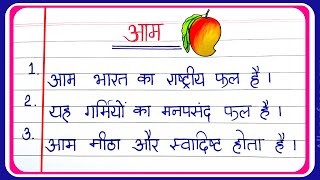 आम
1. आम भारत का राष्ट्रीय फल है ।
2. यह गर्मियों का मनपसंद फल है ।
3. आम मीठा और स्वादिष्ट होता है ।